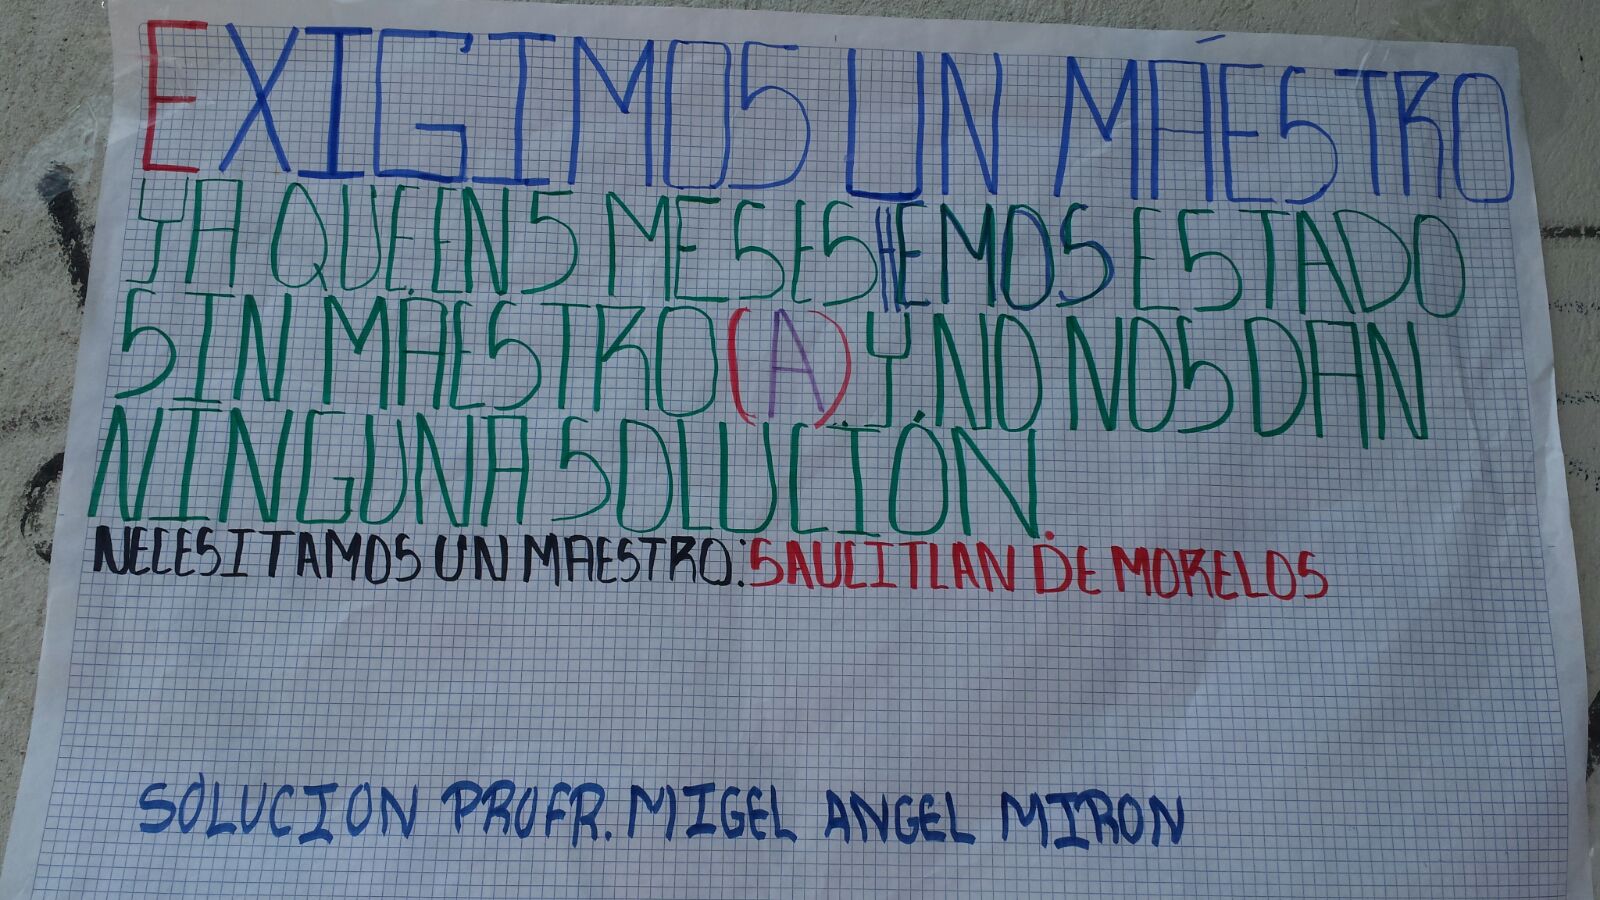 EXIGIMOS UN MÁESTRO
YA QUE EN 5 MESES HEMOS ESTADO
SIN MAESTRO(A) Y NO NOS DAN
NINGUNA SOLUCIÓN.
NECESITAMOS UN MAESTRO: SAUCITLAN DE MORELOS
SOLUCION PROFR. MIGEL ANGEL MIRON